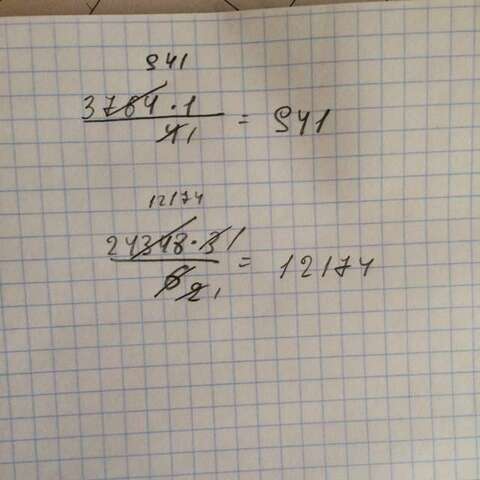 941
3764 · 1
41 = 941
12174
24348 · 3 1
6 2 1 = 12174